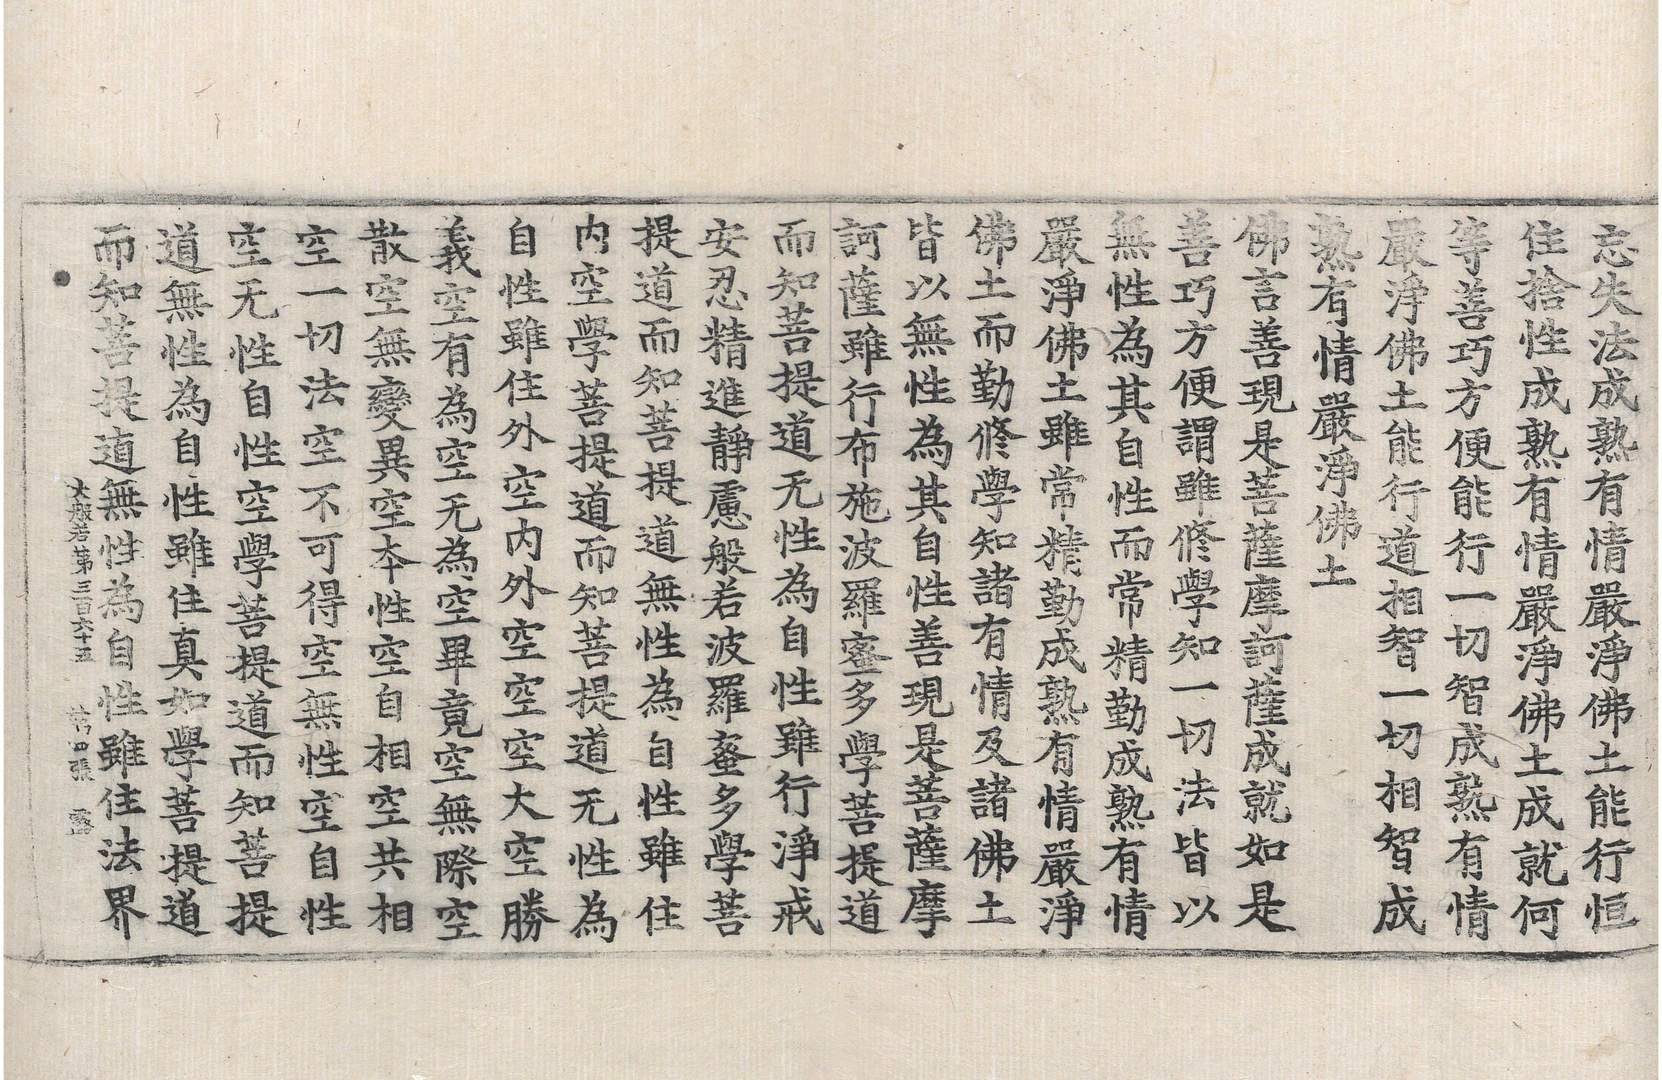 忘失法成熟有情嚴淨佛土能行恒
住捨性成熟有情嚴淨佛土成就何
等善巧方便能行一切智成熟有情
嚴淨佛土能行道相智一切相智成
熟有情嚴淨佛土
佛言善現是菩薩摩訶薩成就如是
善巧方便謂雖修學知一切法皆以
無性為其自性而常精勤成熟有情
嚴淨佛土雖常精勤成熟有情嚴淨
佛土而勤修學知諸有情及諸佛土
皆以無性為其自性善現是菩薩摩
訶薩雖行布施波羅蜜多學菩提道
而知菩提道无性為自性雖行淨戒
安忍精進靜慮般若波羅蜜多學菩
提道而知菩提道無性為自性雖住
内空學菩提道而知菩提道无性為
自性雖住外空内外空空空大空勝
義空有為空无為空畢竟空無際空
散空無變異空本性空自相空共相
空一切法空不可得空無性空自性
空无性自性空學菩提道而知菩提
道無性為自性雖住真如學菩提道
而知菩提道無性為自性雖住法界
大般若第三百六十五 第四張